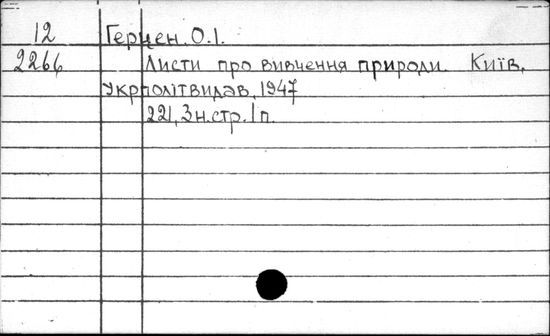 12 Герцен. О.І.
2266 Листи про вивчення природи. Київ,
Укрполітвидав, 1947
221, 3 н.стр. 1 п.